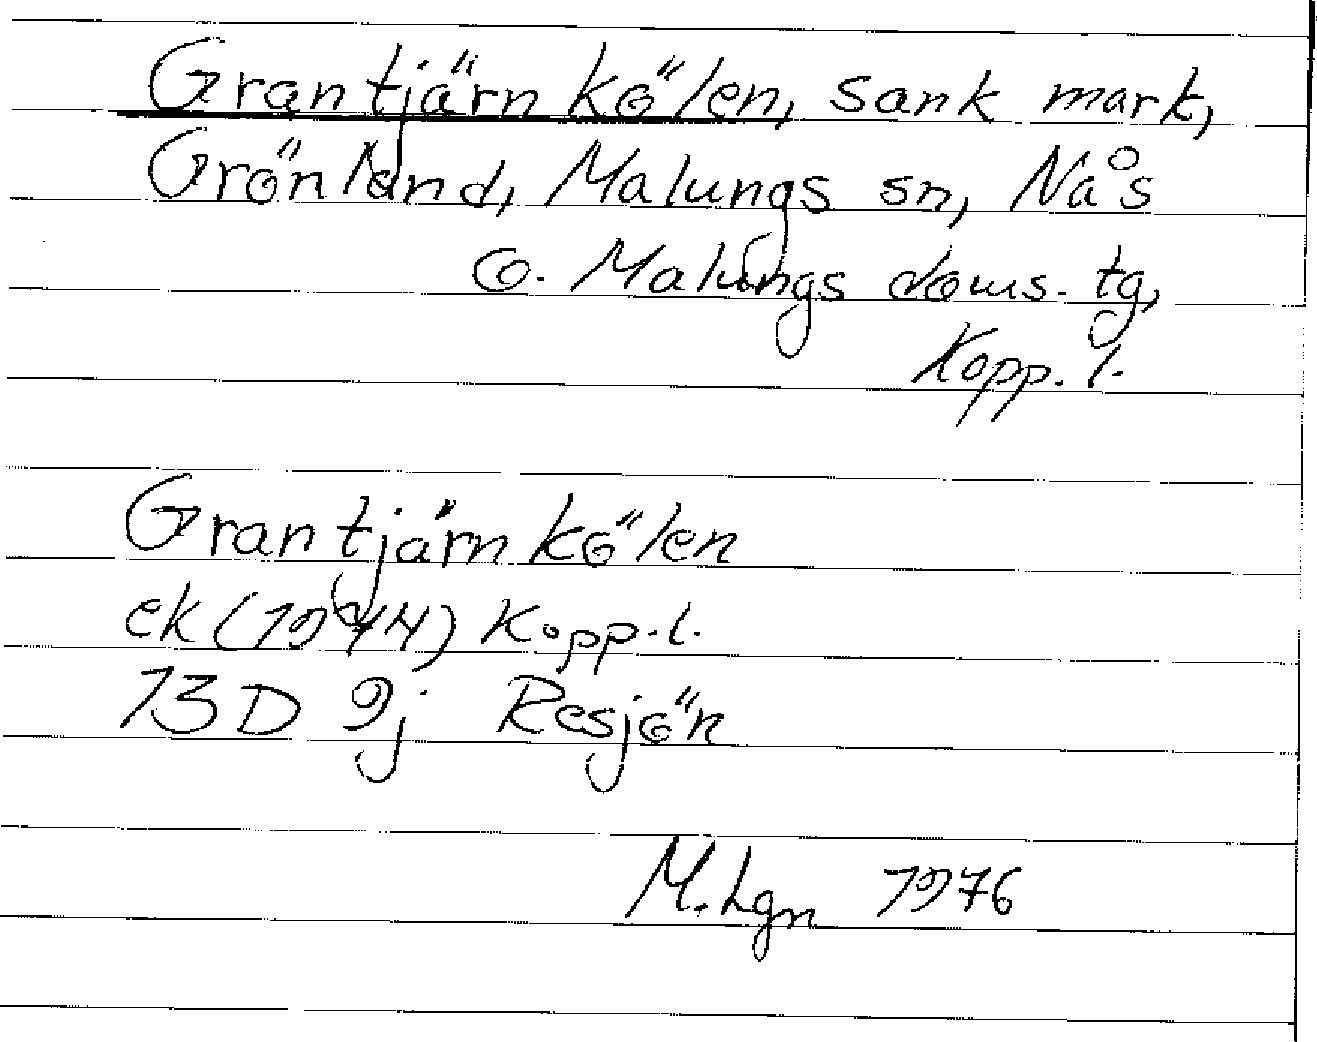 Grantjärnkölen, sank mark,
Grönland, Malungs sn, Nås
o. Malungs doms. tg,
Kopp. l.
Grantjärnkölen
ek (1974) Kopp. l.
13D 9j Resjön
M. Lgn 1976